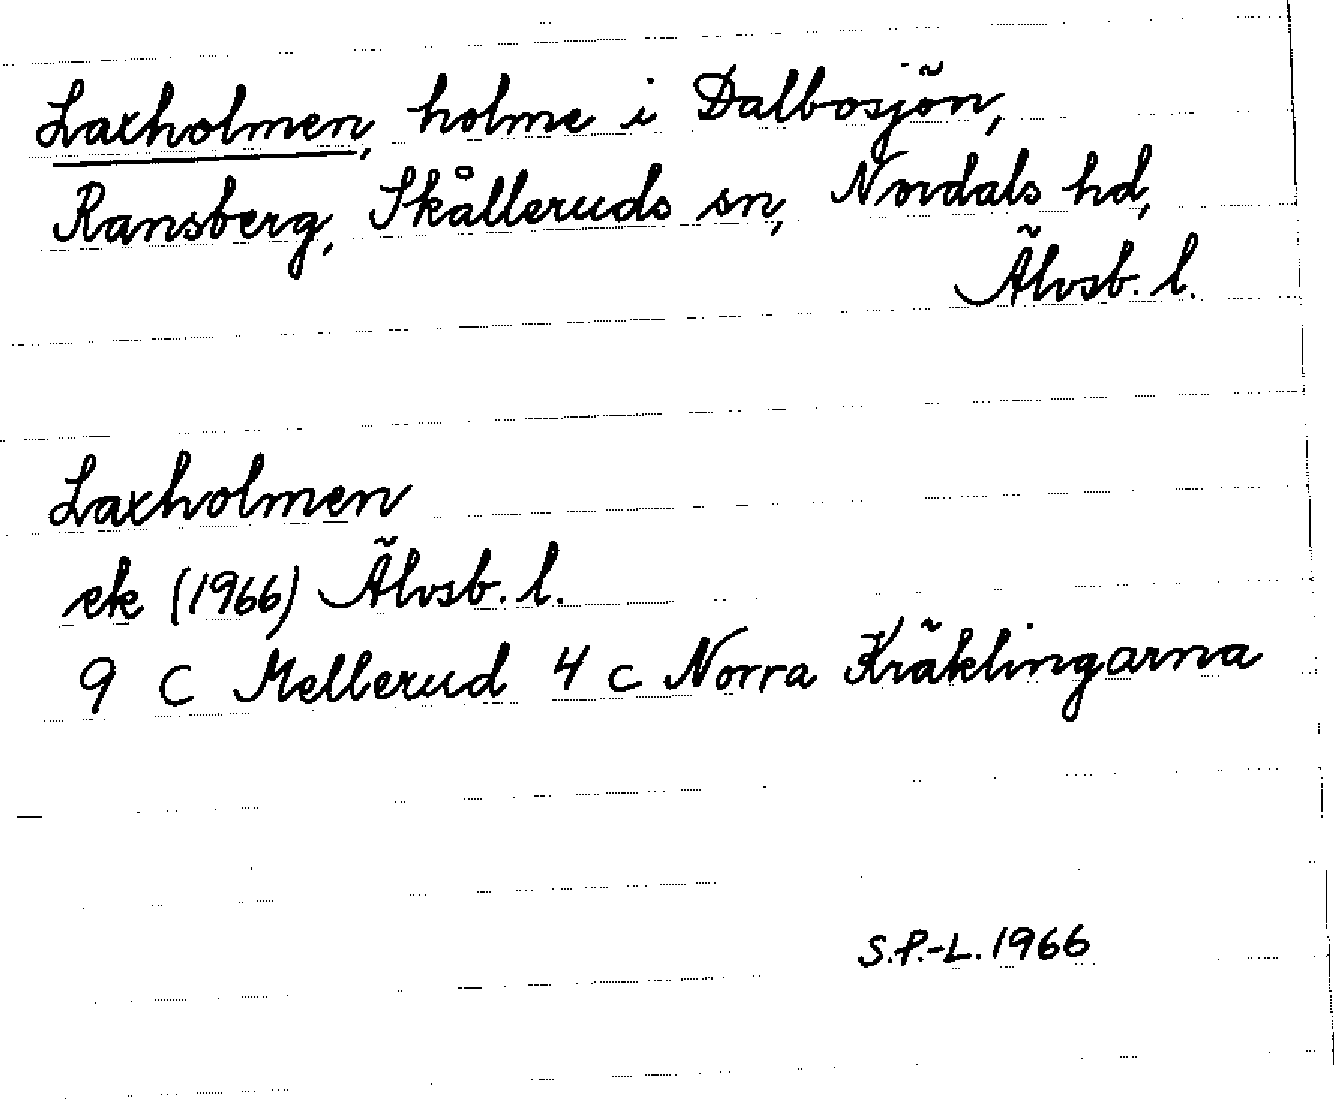 Laxholmen, holme i Dalbosjön,
Ransberg, Skålleruds sn, Nordals hd,
Älvsb. l.
Laxholmen
ek (1966) Älvsb. l.
9 C Mellerud 4 c Norra Kräklingarna
S.P.-L. 1966